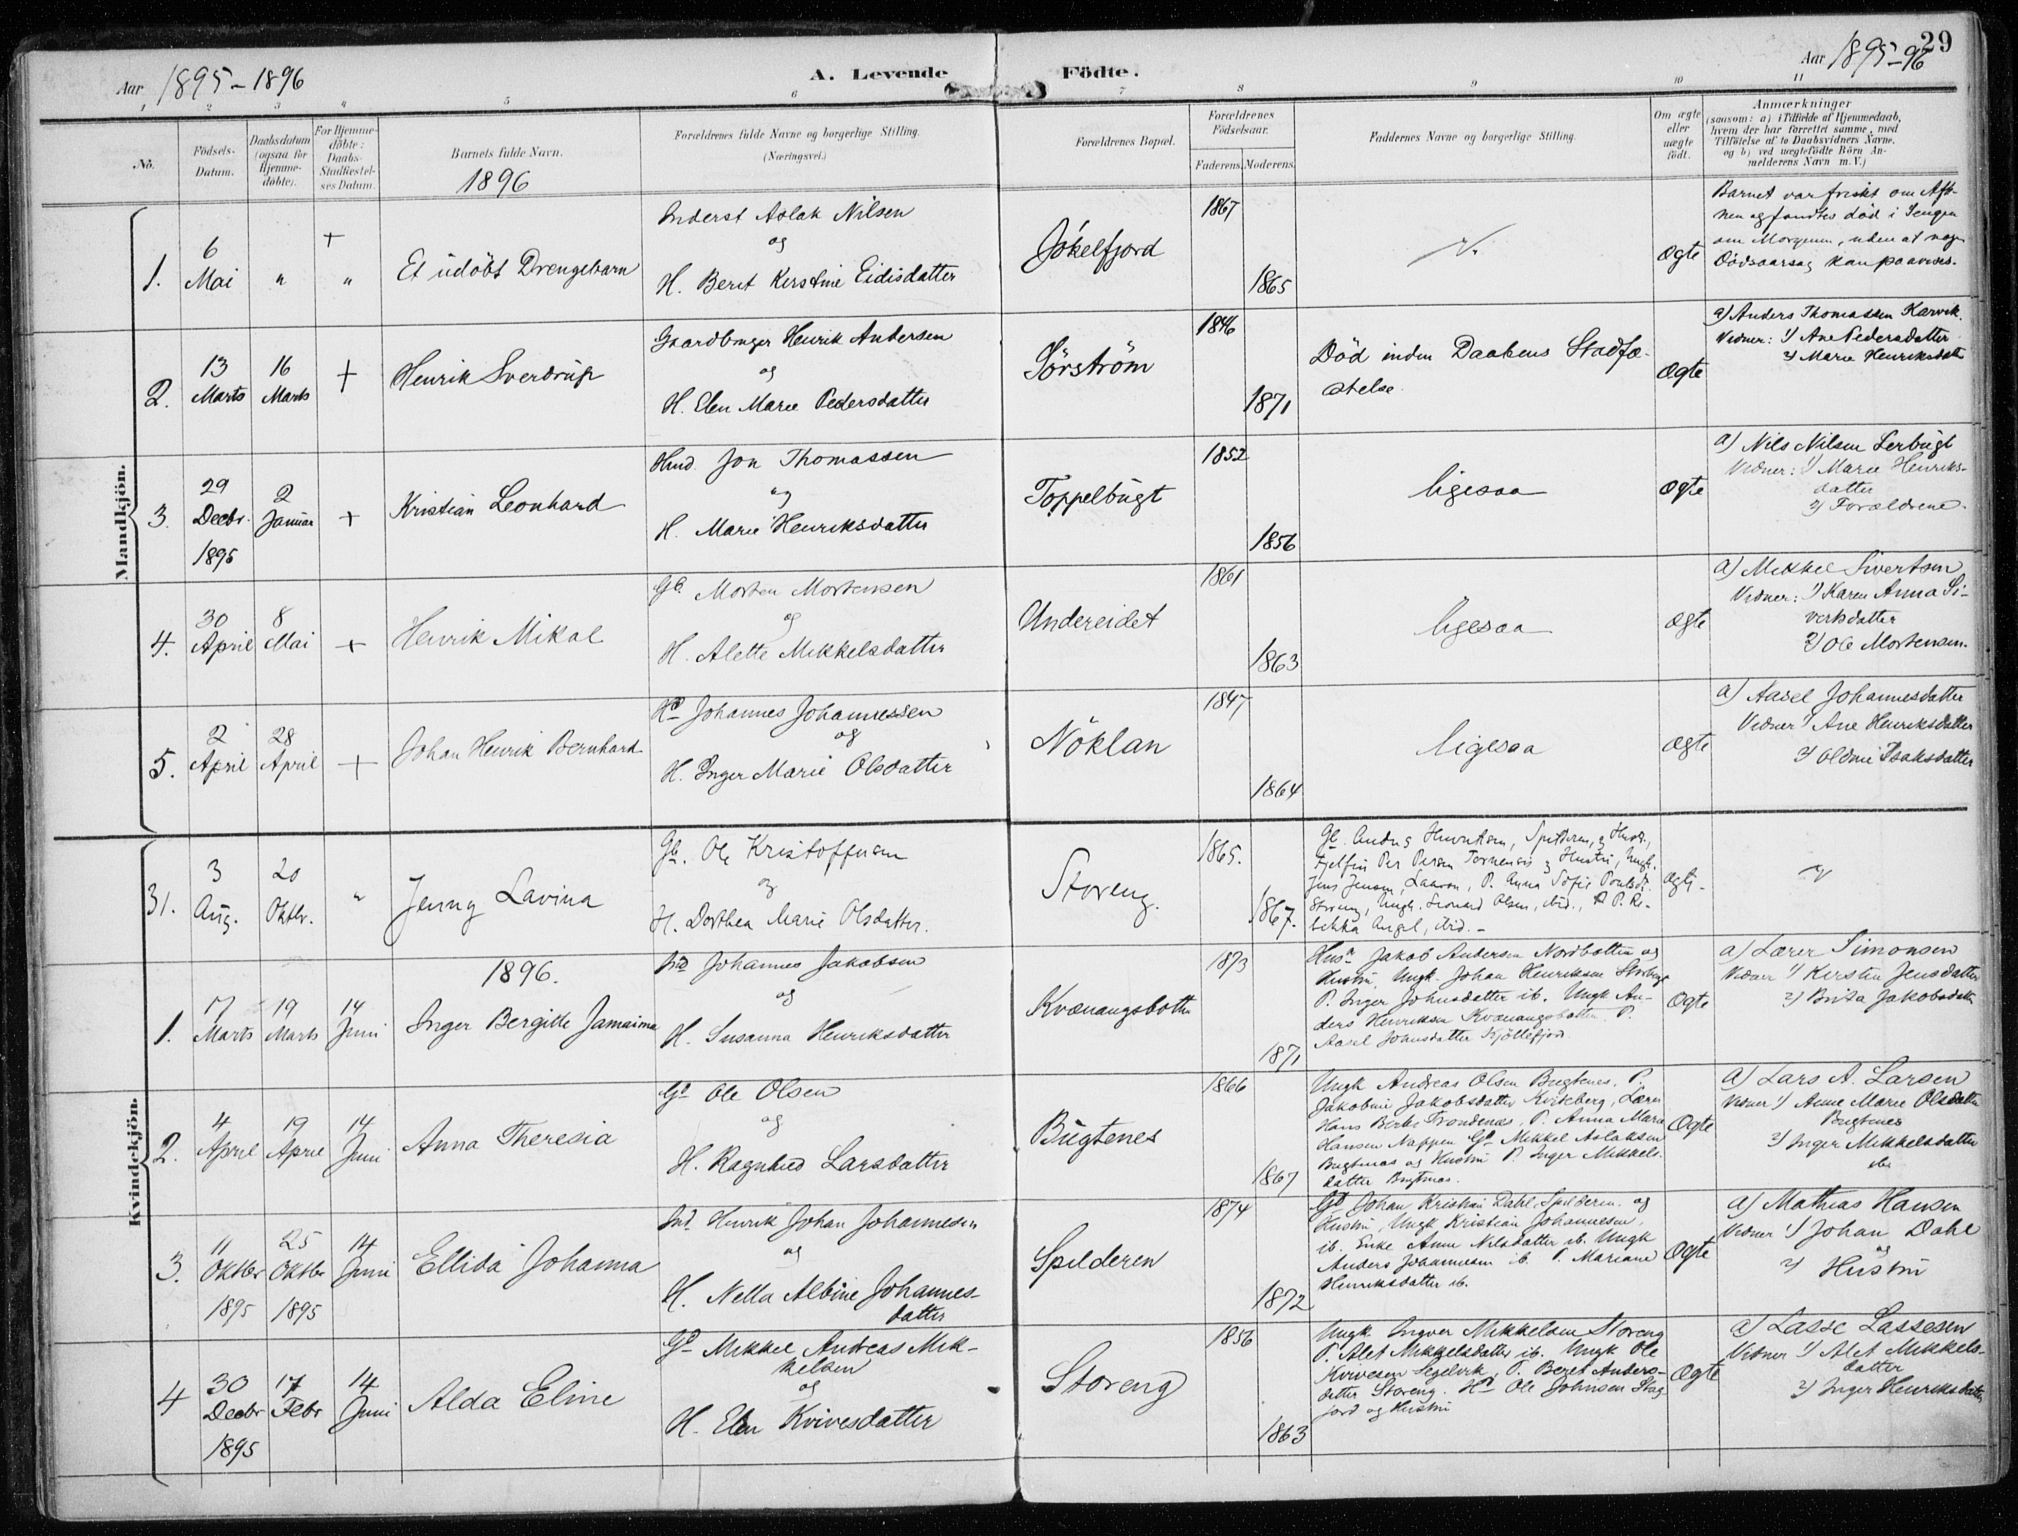 29
Aar 1895-1896
A. Levende Födte.
Aar 1895-96
1 2 3 4 5 6 7 8 9 10 11
No.
Födsels-Datum.
Daabsdatum (ogsaa for Hjemme-döbte).
For Hjemme-döbte: Daabs-Stadfæstel-ses Datum.
Barnets fulde Navn.
1896
Forældrenes fulde Navne og borgerlige Stilling.
(Næringsvei.)
Forældrenes Bopæl.
Forældrenes Födselsaar.
Faderens. Moderens.
Faddernes Navne og borgerlige Stilling.
Om ægte eller uægte födt.
Anmærkninger
(saasom: a) i Tilfælde af Hjemmedaab,
hvem der har forrettet samme, med
Tilföielse af to Daabsvidners Navne,
og b) ved uægtefödte Börn An-
melderens Navn m. V.)
Mandkjön.
1. 6 Mai " + "
Et udöbt Drengebarn
Inderst Aslak Nilsen
og
H. Berit Kirstine Eidisdatter
Jökelfjord
1867
1865
ægte
Barnet var friskt om Aft-
nen og fandtes död i Sengen
om Morgenen, uden at nogen
Dödsaarsag kan paavises.
2. 13 Marts 16 Marts +
Henrik Sverdrup
Gaardbruger Henrik Andersen
og
H. Elen Marie Pedersdatter
Sörström
1846
1871
Död inden Daabens Stadfæ-
stelse.
ægte
a) Anders Thomassen Karvik.
Vidner: 1) Ane Pedersdatter
2) Marie Henriksdat
3. 29 Decbr. 1895 2 Januar +
Kristian Leonhard
Hmd. Jon Thomassen
og
H. Marie Henriksdatter
Toppelbugt
1852
1856
ligesaa
ægte
a) Nils Nilsen Lerbugt
Vidner: 1) Marie Henriks-
datter
2) Forældrene.
4. 30 April 8 Mai +
Henrik Mikal
Gb. Morten Mortensen
og
H. Alette Mikkelsdatter
Undereidet
1861
1863
ligesaa
ægte
a) Mikkel Sivertsen
Vidner: 1) Karen Anna Si-
vertsdatter
2) Ole Mortensen.
5. 2 April 28 April +
Johan Henrik Bernhard
Johannes Johannessen
og
H. Inger Marie Olsdatter
Nöklan
1847
1864
ligesaa
ægte
a) Aasel Johannesdatter
Vidner 1) Ane Henriksdatter
2) Oldine Isaksdatter
Kvindekjön.
31. 3 Aug. 20 Oktbr. "
Jenny Lavina
Gb. Ole Kristoffersen
og
H. Dorthea Marie Olsdatter.
Storeng.
1865.
1867.
Gb. Anders Henriksen, Spilderen, og Hustr.,
Per Persen og Hustru, Ungk.
Jens Jensen, P. Anna Sofie Poulsdt.
Storeng, Ungk. Leonard Olsen, ibid., P. Re-
bekka ibid. -
ægte.
1896.
1. 17 Marts 19 Marts 14 Juni
Inger Bergitte Jamaima
Johannes Jakobsen
og
H. Susanna Henriksdatter
Kvænangsbotn
1873
1871
Jakob Andersen Nordbotten og
Hustru, Ungk. Johan Henriksen
P. Inger Johnsdatter ib. Ungk An-
ders Henriksen Kvænangsbotten P.
Aasel Johnsdatter Kjöllefjord.
Ægte
a) Lærer Simonsen
Vidner 1) Kirsten Jensdatter
2) Brita Jakobsdatter
2. 4 April 19 April 14 Juni
Anna Theresia
Gb Ole Olsen
og
H. Ragnhild Larsdatter
Bugtenes
1866
1867
Ungk Andreas Olsen Bugtenes. P.
Jakobine Jakobsdatter Kvikeberg, Lærer
Hans Trondenæs, P. Anna Maria
Hansen Nappen Gb Mikkel Aslaksen
Bugtenæs og Hustru P. Inger Mikkels-
datter Bugtenæs.
Ægte
a) Lars A. Larsen
Vidner 1) Anne Marie Olsdatter
Bugtenes
2) Inger Mikkelsdatter
ib.
3. 11 Oktbr 1895 25 Oktbr 1895 14 Juni
Ellida Johanna
Ind. Henrik Johan Johannesen
og
H. Nella Albine Johannes-
datter
Spilderen
1874
1872
Gb Johan Kristian Dahl, Spilderen og
Hustru, Ungk Kristian Johannesen,
ib. Enke Anne Nilsdatter ib. Ungk
Anders Johannesen ib. P. Mariane
Henriksdatter ib.
Ægte
a) Mathias Hansen
Vidner 1) Johan Dahl
og
2) Hustru
4 30 Decbr 1895 17 Febr 14 Juni
Alda Eline
Gb Mikkel Andreas Mik-
kelsen
og
H. Elen Kvivesdatter
Storeng
1856
1863
Ungk Ingver Mikkelsen Storeng
P. Alet Mikkelsdatter ib. Ungk Ole
Kvivesen Segelvik, P. Beret Anders-
datter Storeng. Ole Johnsen Stag-
fjord og Hustru
Ægte
a) Lasse Lassesen
Vidner 1) Alet Mikkels-
datter
2) Inger Henriksdatter